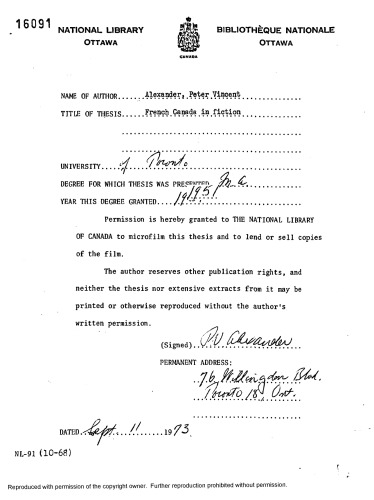 16091
NATIONAL LIBRARY
OTTAWA
CANADA
BIBLIOTHÈQUE NATIONALE
OTTAWA
NAME OF AUTHOR......Alexander, Peter Vincent
TITLE OF THESIS.....French Canada in fiction
UNIVERSITY of Toronto
DEGREE FOR WHICH THESIS WAS PRESENTED M.A.
YEAR THIS DEGREE GRANTED 1951
Permission is hereby granted to THE NATIONAL LIBRARY
OF CANADA to microfilm this thesis and to lend or sell copies
of the film.
The author reserves other publication rights, and
neither the thesis nor extensive extracts from it may be
printed or otherwise reproduced without the author's
written permission.
(Signed) PV Alexander
PERMANENT ADDRESS:
76 Willingdon Blvd.
Toronto 18, Ont.
DATED Sept. 11 1973
NL-91 (10-68)
Reproduced with permission of the copyright owner. Further reproduction prohibited without permission.